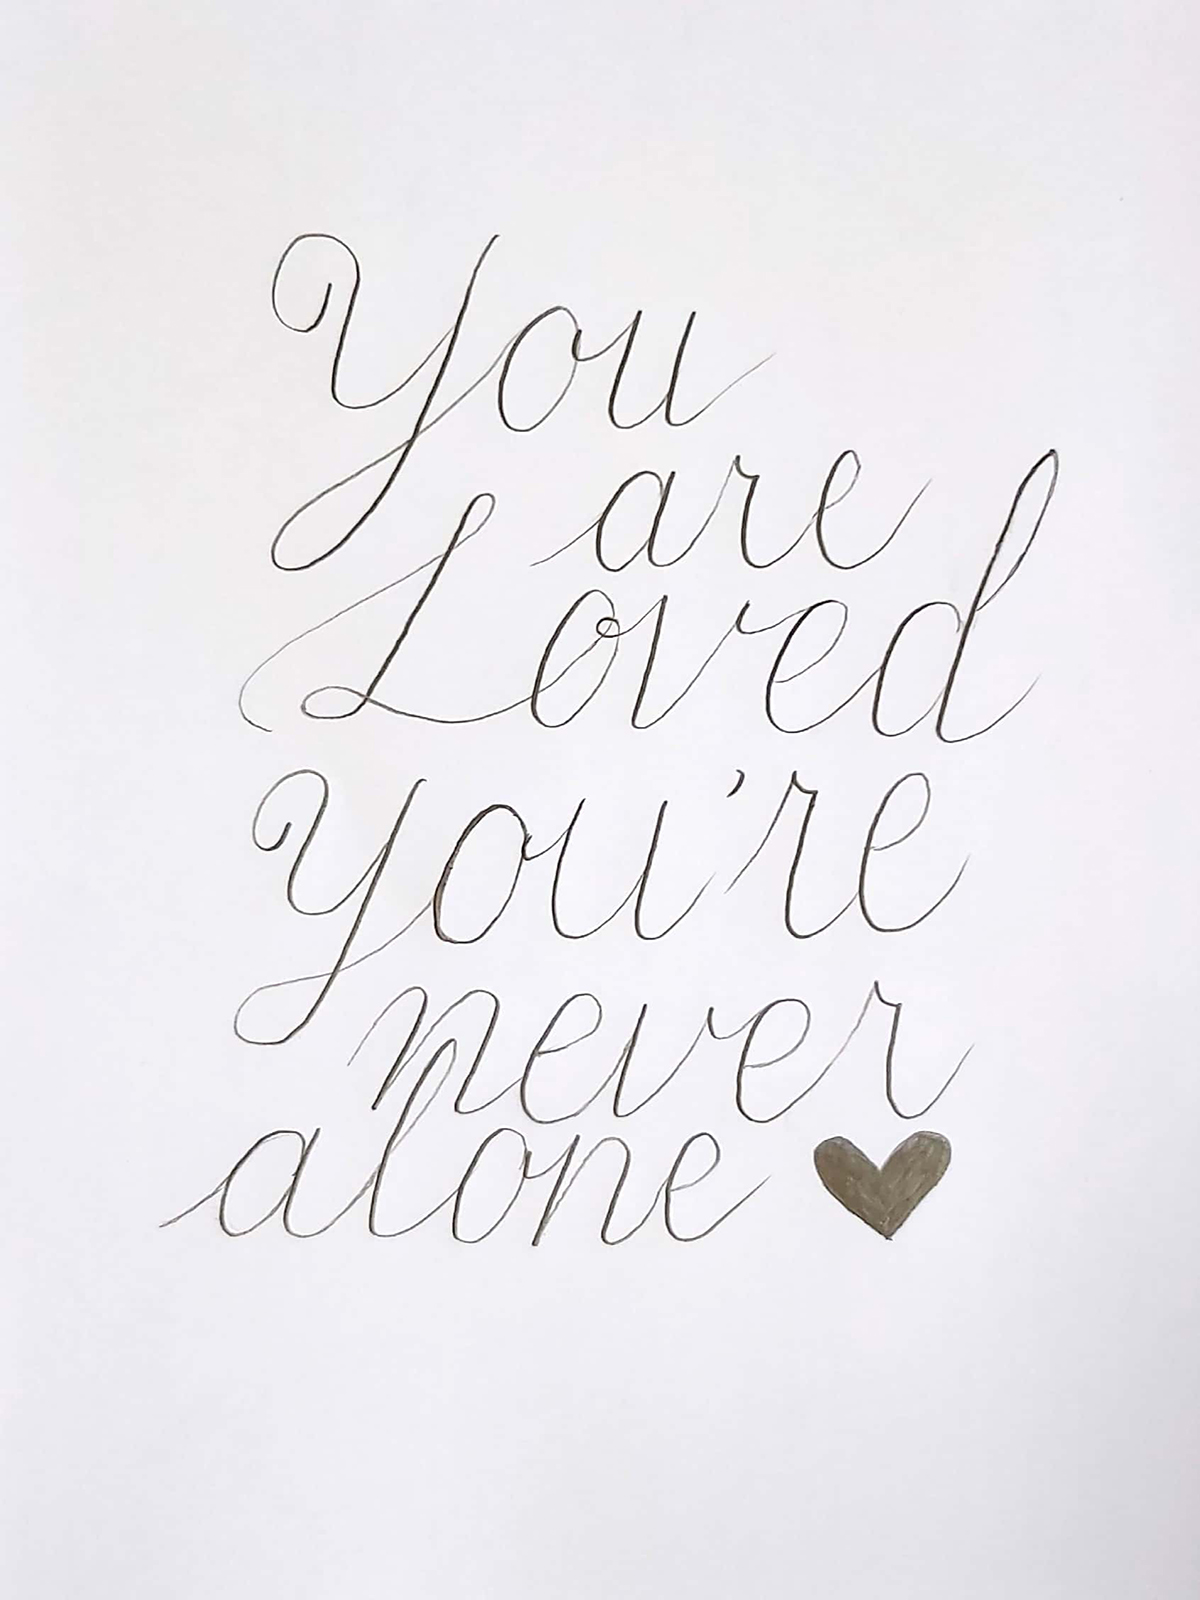 You
are
Loved
You're
never
alone ♥